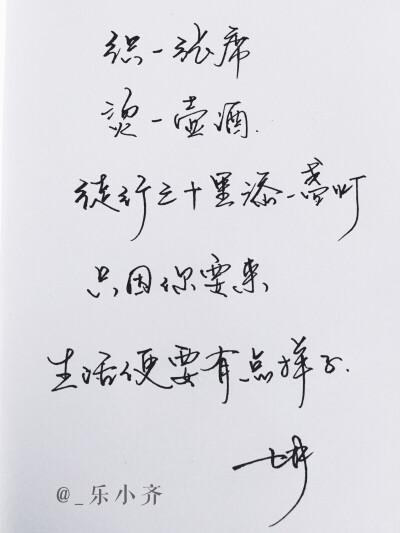 织一张席
烫一壶酒.
徒行三十里添一盏灯
只因你要来
生活便要有点样子.
@_乐小齐